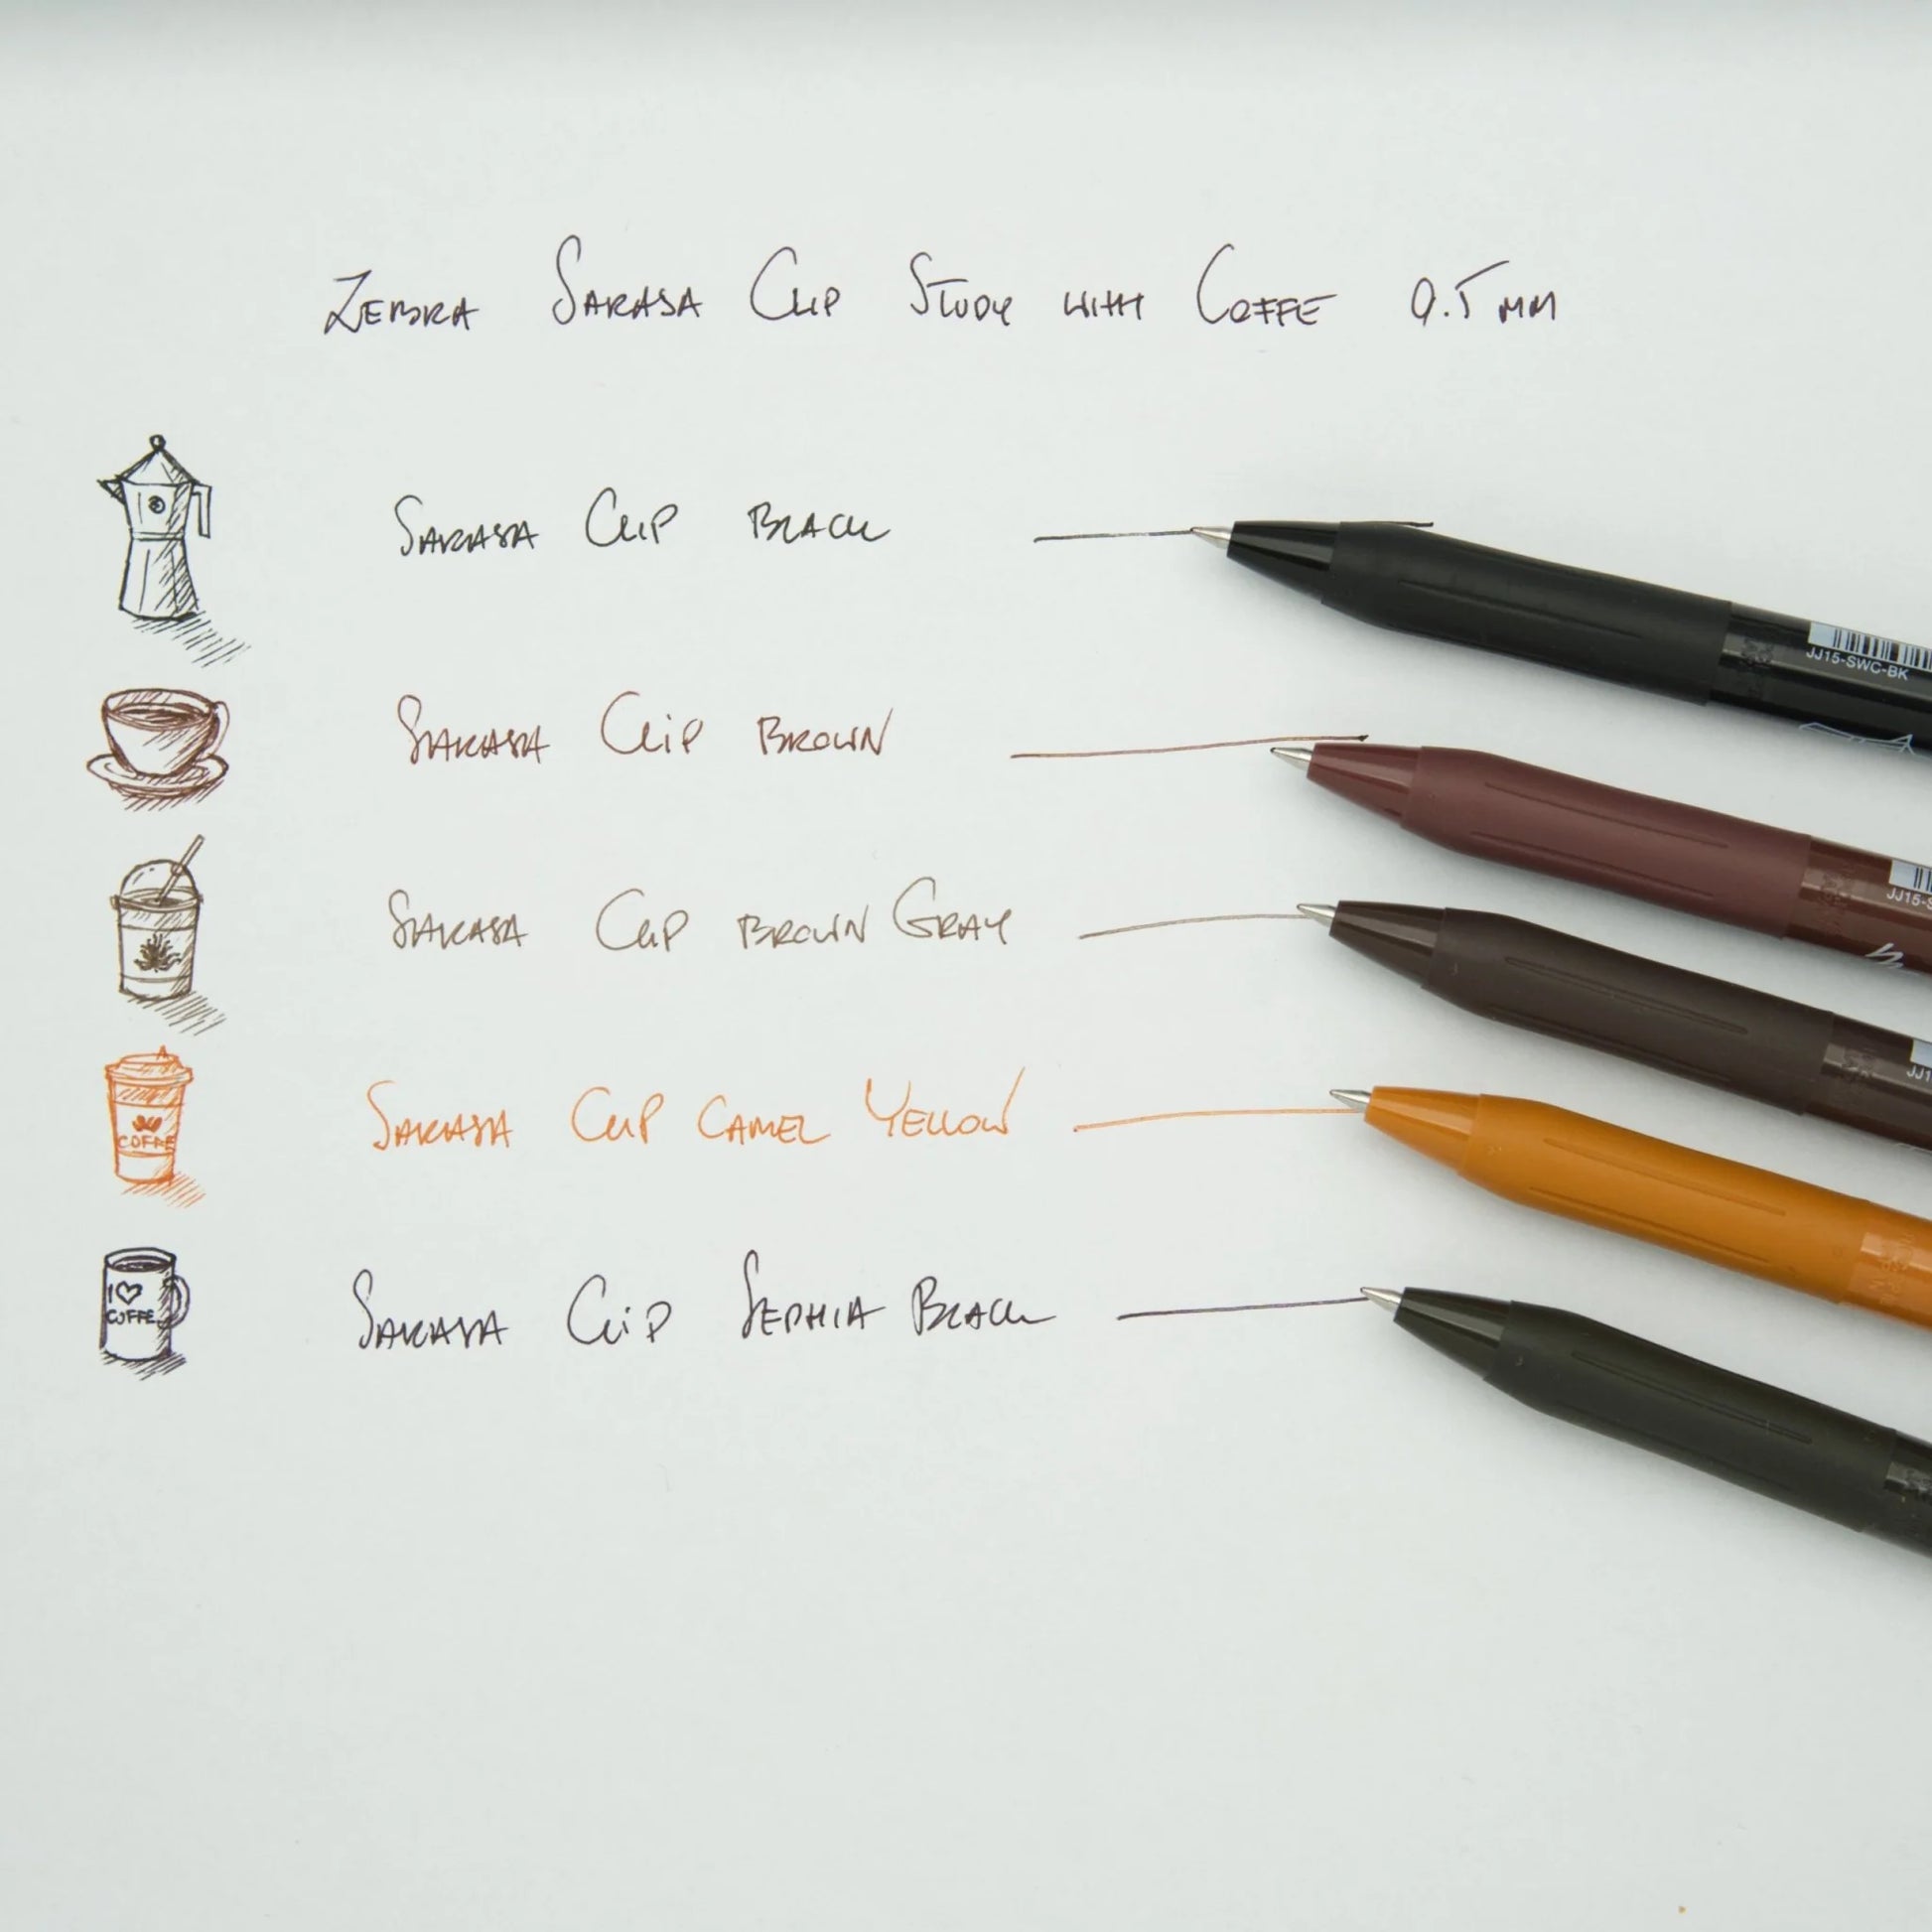 Zebra Sarasa Clip Study with Coffe 0.5 mm
Sarasa Clip Black
JJ15-SWC-BK
Sarasa Clip Brown
JJ15-S
Sarasa Clip Brown Gray
JJ1
COFFE
Sarasa Clip Camel Yellow
I ♡
COFFE
Sarasa Clip Sephia Black